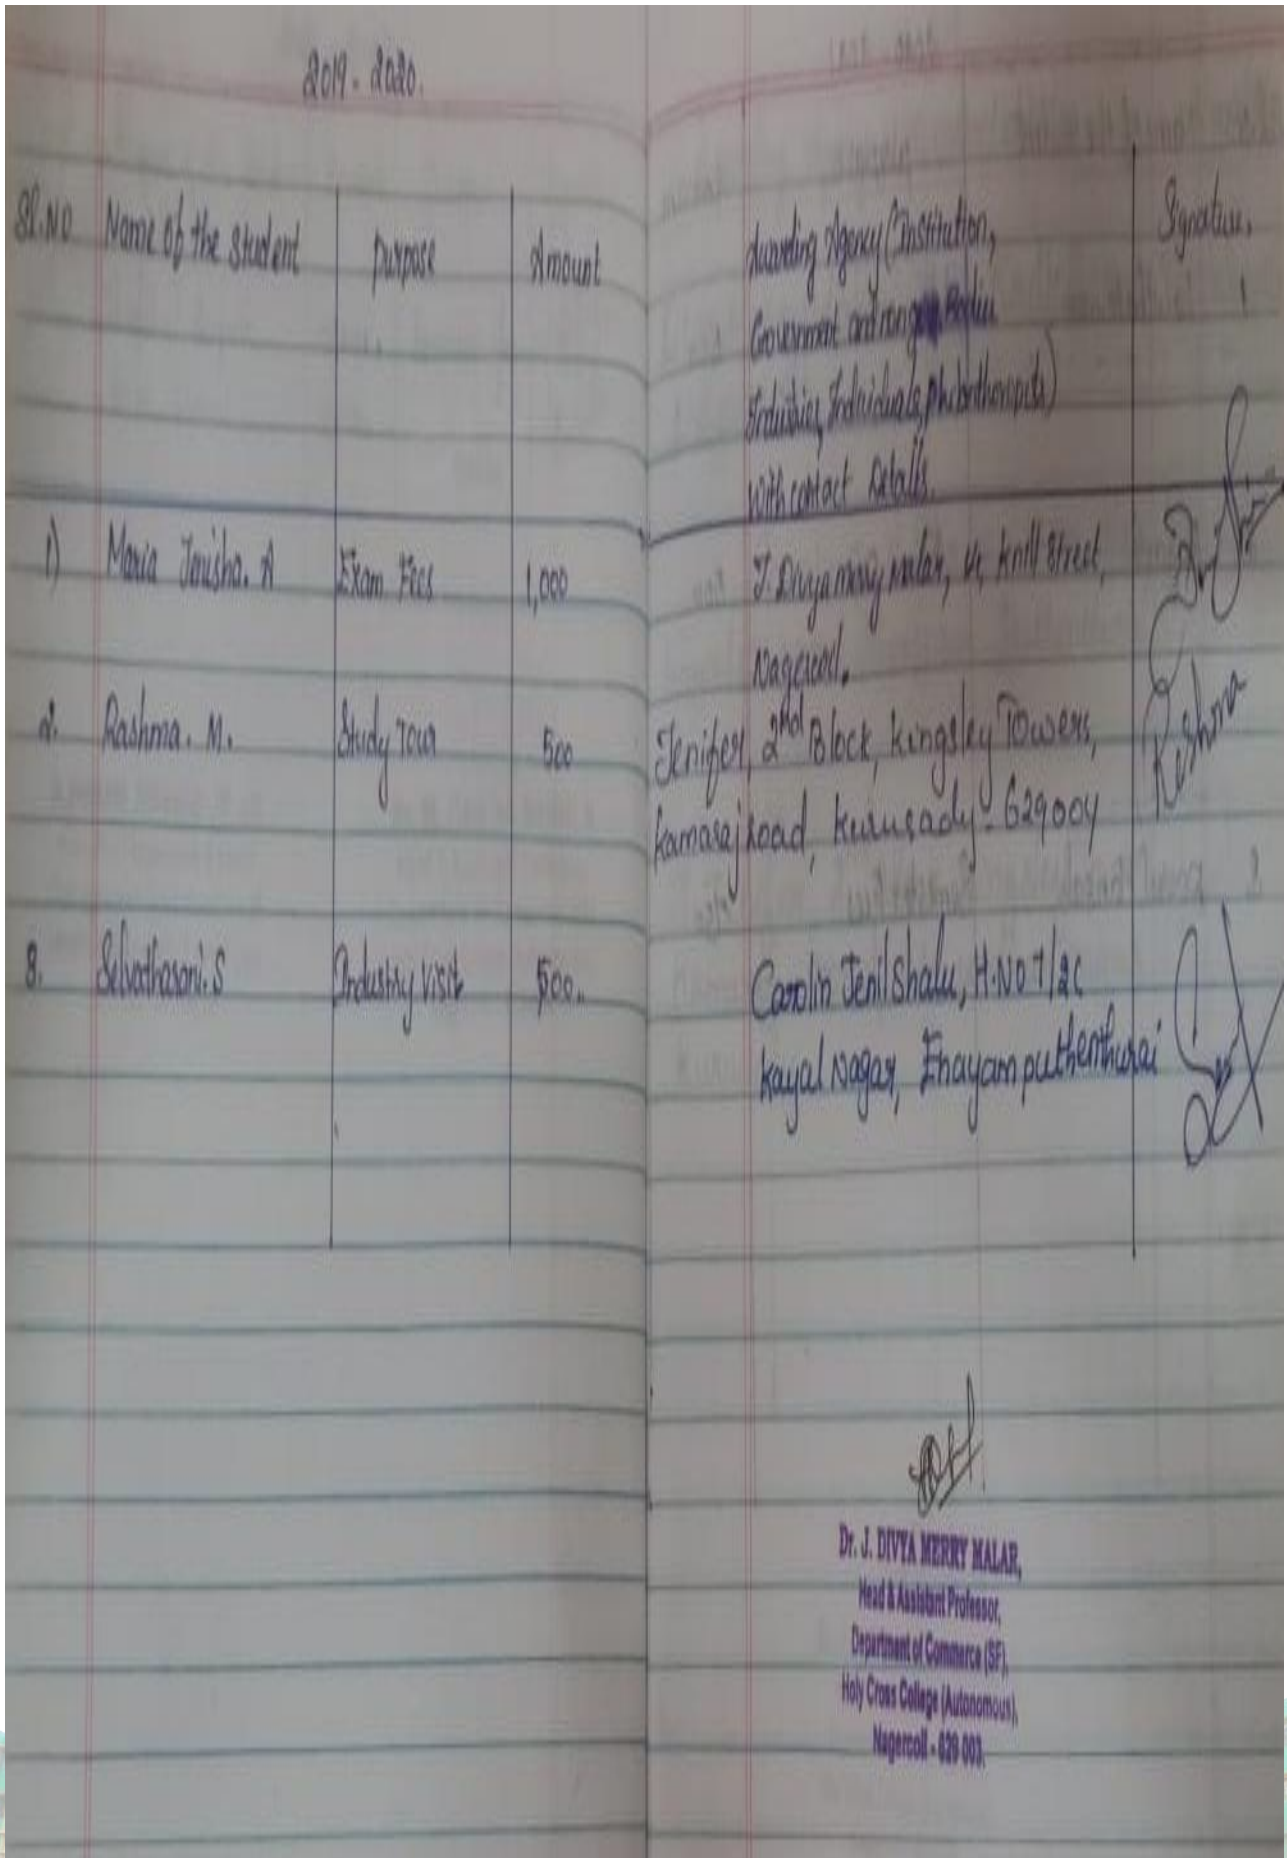 2019 - 2020.
Sl.No Name of the student purpose Amount
Awarding Agency (Institution,
Government and non Bodies
Industries, Individuals, philanthropists)
with contact Details.
Signature.
1) Maria Jenisha. A Exam Fees 1,000
J. Divya merry malar, Knill Street,
Nagercoil.
2. Rashma. M. Study Tour 500
Jenifer, 2nd Block, Kingsley Towers,
Kamaraj road, Kurusady - 629004
Reshma
3. Selvathasani. S Industry visit 500
Carolin Jenil Shalu, H.No 7/2C
Kayal Nagar, Enayam puthenthurai
Dr. J. DIVYA MERRY MALAR,
Head & Assistant Professor,
Department of Commerce (SF),
Holy Cross College (Autonomous),
Nagercoil - 629 003.